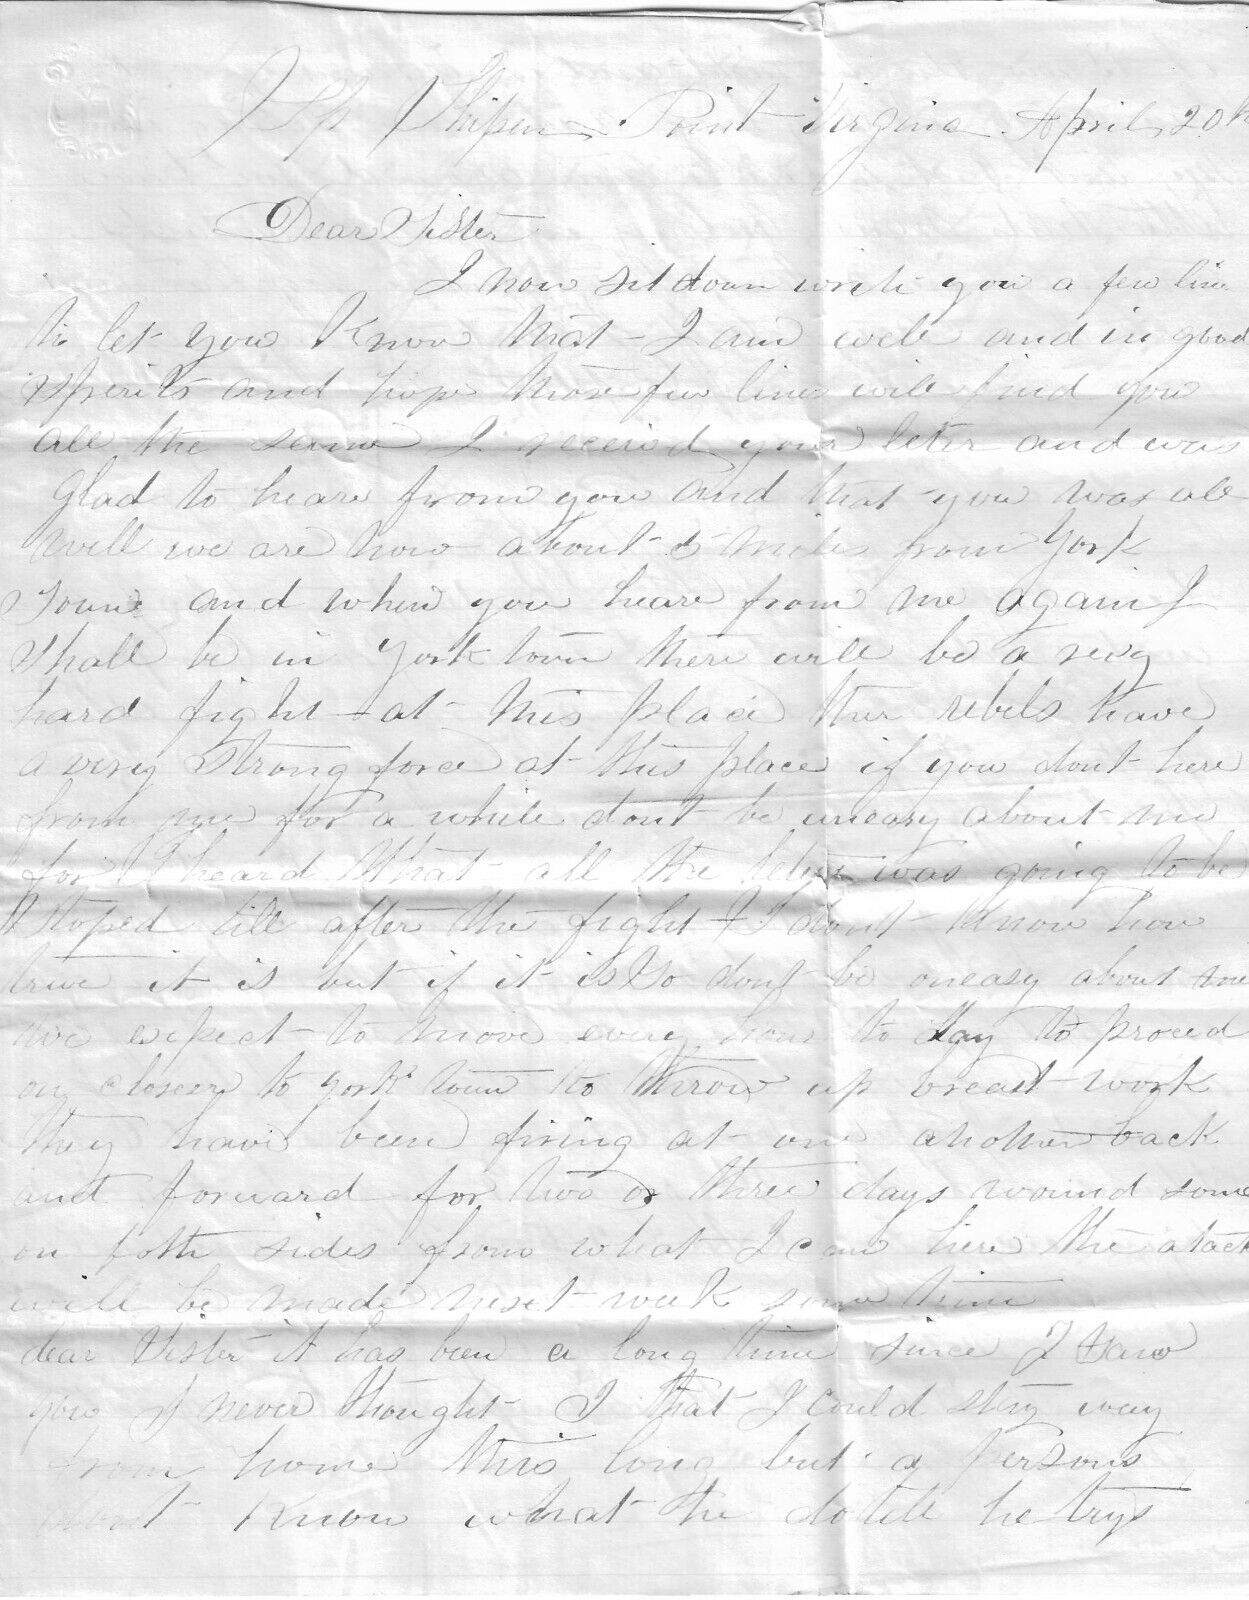 Shipen Point Virginia April 20th
Dear Sister
I now sit down write you a few line
to let you know that I am well and in good
spirits and hope those few lines will find you
all the same I receivd your leter and was
glad to heare from you and that you was all
well we are now about 5 miles from York
Town and when you heare from me again I
shall be in York town there will be a very
hard fight at this place ther rebels have
a very strong force at this place if you dont here
from me for a while dont be uneasy about me
for I heard that all the leters was going to be
stoped till after the fight I dont know how
true it is but if it is so dont be oneasy about me
we expect to move every hour to day to proced
on closer to York town to throw up breast work
they have been firing at one another back
and forward for two or three days wound some
on both sides from what I can here the atack
will be made next week some time
dear Sister it has been a long time since I saw
you I never thought I that I could stay way
from home this long but a persons
dont know what the do till he trys